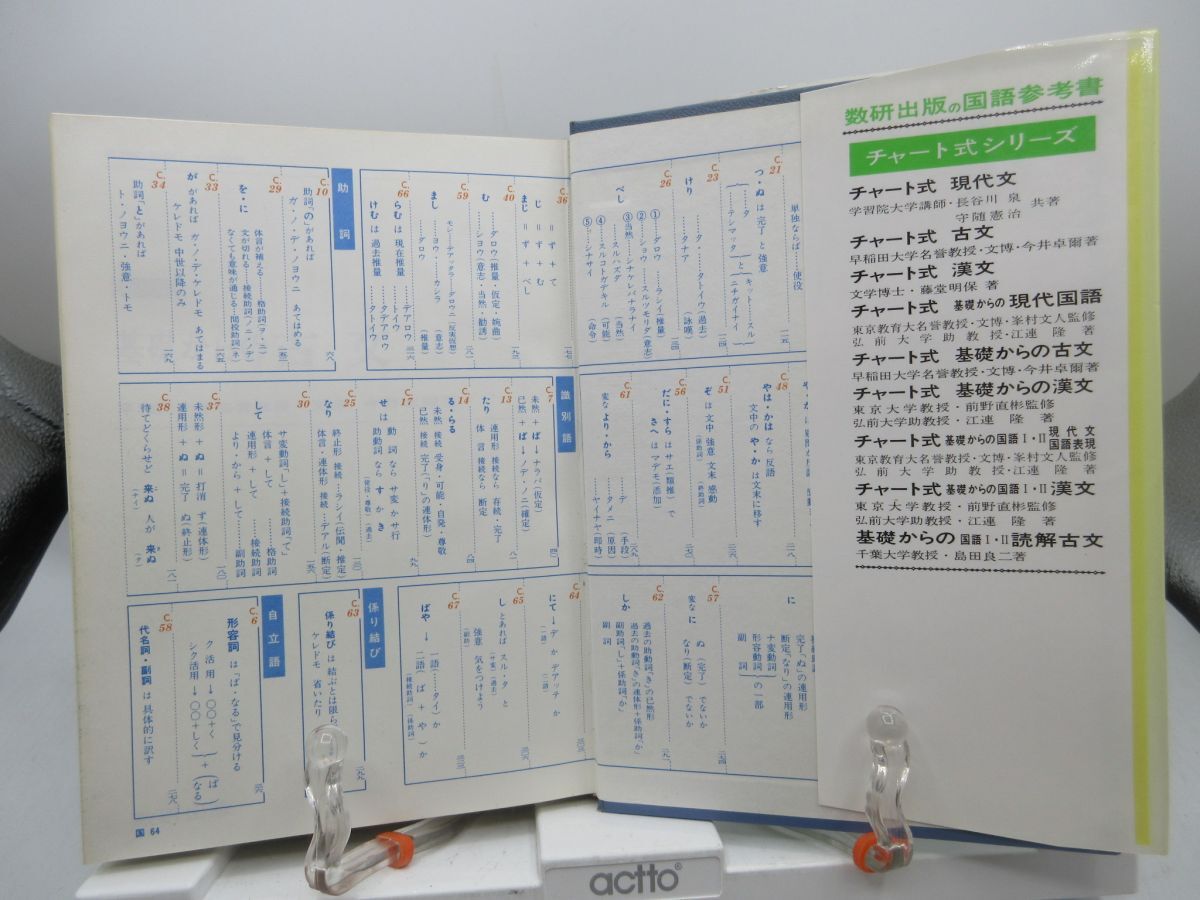 数研出版の国語参考書
チャート式シリーズ
チャート式 現代文
学習院大学講師・長谷川 泉
守随憲治 共著
チャート式 古文
早稲田大学名誉教授・文博・今井卓爾著
チャート式 漢文
文学博士・藤堂明保 著
チャート式 基礎からの 現代国語
東京教育大名誉教授・文博・峯村文人監修
弘前大学助教授・江連 隆 著
チャート式 基礎からの古文
早稲田大学名誉教授・文博・今井卓爾著
チャート式 基礎からの漢文
東京大学教授・前野直彬監修
弘前大学助教授・江連 隆著
チャート式 基礎からの国語Ⅰ・Ⅱ 現代文 国語表現
東京教育大名誉教授・文博・峯村文人監修
弘前大学助教授・江連 隆 著
チャート式 基礎からの国語Ⅰ・Ⅱ 漢文
東京大学教授・前野直彬監修
弘前大学助教授・江連 隆 著
基礎からの 国語Ⅰ・Ⅱ 読解古文
千葉大学教授・島田良二著
C.21
つ・ぬ は完了と強意
C.23
けり
タ・タトイウ(過去)
タナア (詠嘆)
C.26
べし
①ダロウ ラシイ(推量)
②ショウ スルツモリダ(意志)
③当然 シナケレバナラナイ
スルハズダ (当然)
④スルコトガデキル (可能)
⑤シナサイ (命令)
C.36
じ = ず + む
まじ = ず + べし
C.40
む
ダロウ(推量・仮定・婉曲)
ショウ(意志・当然・勧誘)
C.59
まし
モシ…デアッタラ…ダロウニ(反実仮想)
シヨウ・カシラ (意志)
ダロウ (推量)
C.66
らむ は現在推量
けむ は過去推量
助詞
C.10
助詞「の」があれば
ガ・ノ・デ・ノヨウニ あてはめる
C.29
を・に
体言が補える……格助詞(ヲ・ニ)
文が切れる……接続助詞(ノニ・ノデ)
なくても意味が通じる…間投助詞(ネ)
C.33
が があれば ガ・ノ・デ・ケレドモ あてはまる
ケレドモ 中世以降のみ
C.34
助詞「と」があれば
ト・ノヨウニ・強意・トモ
C.48
や・か は文末に移す
やは・かは なら反語
C.51
ぞ は文中 強意 文末 感動
C.56
だに・すら はサエ(類推)で
さへ はマデモ(添加)
C.61
変な より・から
デ (手段)
タメニ (原因)
ヤイナヤ(即時)
識別語
C.7
未然 + ば→ナラバ(仮定)
已然 + ば→ノデ・ノニ(確定)
C.13
たり
連用形 接続なら 存続・完了
体言 接続なら 断定
C.14
る・らる
未然 接続 受身・可能・自発・尊敬
已然 接続 完了「り」の連体形
C.17
せ は
動詞 なら サ変かサ行
助動詞 なら す か き
C.25
なり
終止形 接続→ラシイ(伝聞・推定)
体言・連体形 接続→デアル(断定)
C.30
して
サ変動詞「し」+接続助詞「て」
体言+して……格助詞
連用形+して……接続助詞
より・から+して……副助詞
C.37
未然形+ぬ=打消 ず(連体形)
連用形+ぬ=完了 ぬ(終止形)
C.38
待てどくらせど 来ぬ 人が 来ぬ
C.57
変な に
ぬ (完了) でないか
なり(断定) でないか
C.62
しか
過去の助動詞「き」の已然形
過去の助動詞「き」の連体形+係助詞「か」
副助詞「し」+係助詞「か」
副詞
C.64
にて→デ か デアッテ か
C.65
し とあれば スル・タ と
強意 気をつけよう
C.67
ばや→
一語(……タイ)か
二語(ば + や)か
係り結び
C.63
係り結び は 結ぶとは限ら
ケレドモ 省いたり
自立語
C.6
形容詞 は「ば・なる」で見分ける
ク活用→○○+く
シク活用→○○+しく
+(ば なる)
C.58
代名詞・副詞 は具体的に訳す
国 64
actto